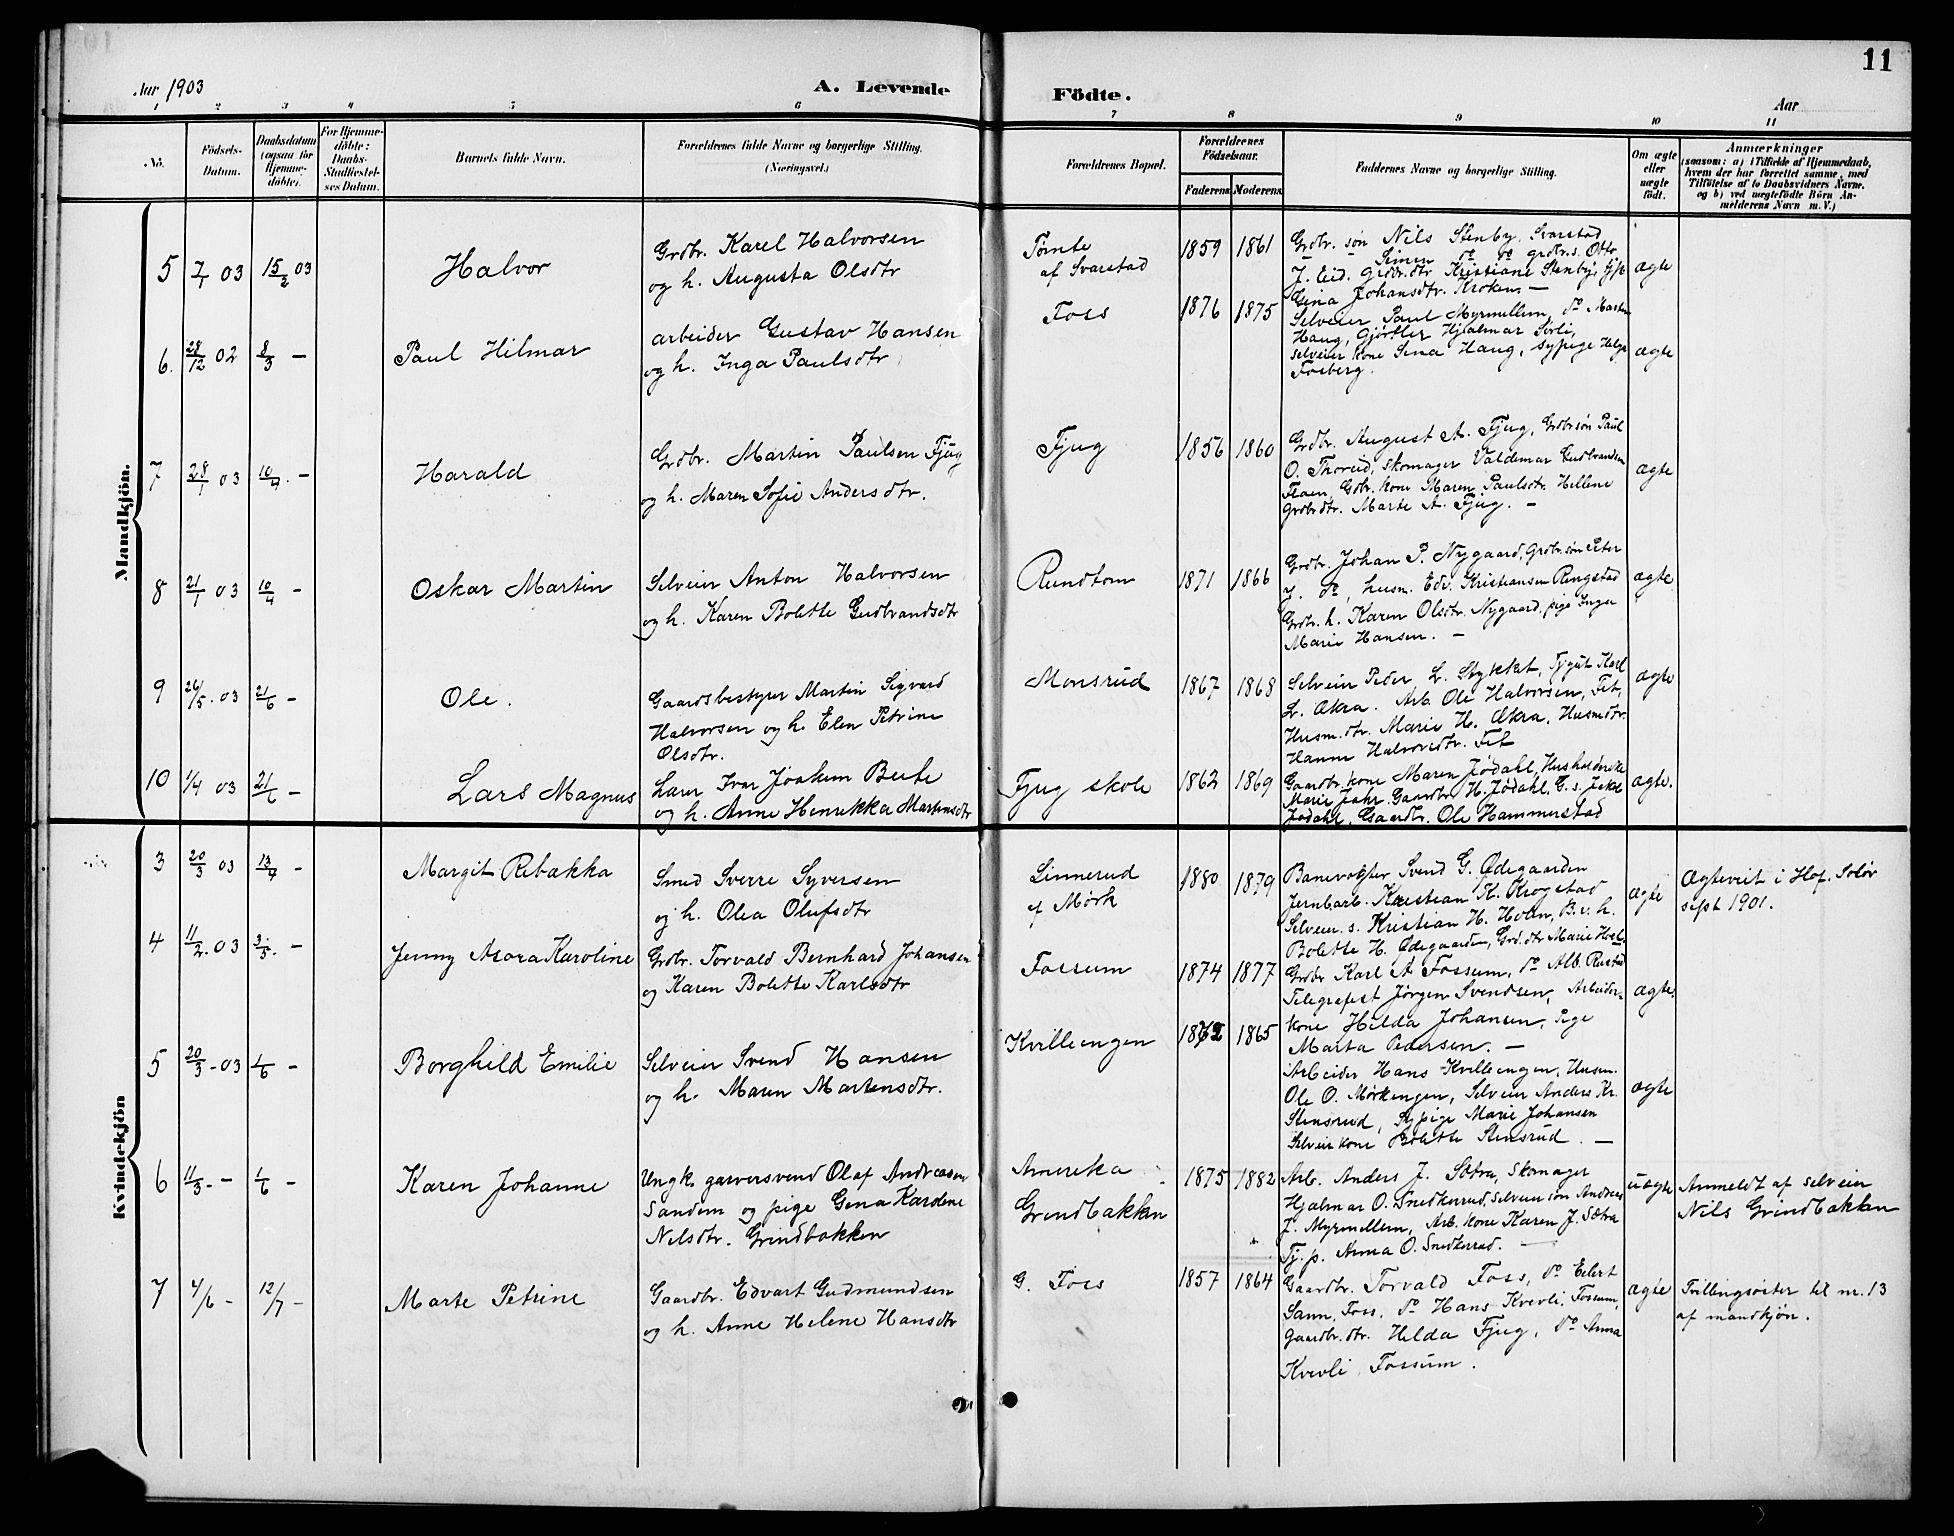 11
Aar 1903
A. Levende Födte.
Aar
1 2 3 4 5 6 7 8 9 10 11
No.
Födsels-
Datum.
Daabsdatum
(ogsaa for
Hjemme-
döbte).
For Hjemme-
döbte:
Daabs-
Stadfæstel-
ses Datum.
Barnets fulde Navn.
Forældrenes fulde Navne og borgerlige Stilling.
(Næringsvei.)
Forældrenes Bopæl.
Forældrenes
Födselsaar.
Faderens. Moderens.
Faddernes Navne og borgerlige Stilling.
Om ægte
eller
uægte
född.
Anmærkninger
(saasom: a) i Tilfælde af Hjemmedaab,
hvem der har forrettet samme, med
Tilföielse af to Daabsvidners Navne.
og b) ved uægtefödte Börn An-
melderens Navn m. V.)
Mandkjön.
5 7/1 03 15/2 03
Halvor
Grdbr. Karel Halvorsen
og h. Augusta Olsdtr
Tömte
af Svarstad
1859 1861
Grdbr. søn Nils Stenby, Svarstad
Simen do do grdbr.s. Otto
J. Eid. Grdbr.dtr Kristiane Stenby,
Gina Johansdtr. Kroken. —
ægte
6. 28/12 02 8/3 —
Paul Hilmar
arbeider Gustav Hansen
og h. Inga Paulsdtr
Foss
1876 1875
Selveier Paul Myrmellem, do Martin
Haug, Gjørtler Hjalmar Sörli,
selveier kone Sina Haug, sypige Helga
Fosberg.
ægte
7 28/1 03 10/4 —
Harald
Grdbr. Martin Paulsen Fjug
og h. Maren Sofie Andersdtr.
Fjug
1856 1860
Grdbr. August A. Fjug, Grdbrsøn Paul
O. Thoreid, skomager Valdemar Gudbrandsen
Flaen, Gdbr. kone Maren Paulsdtr. Hellene
grdbrdtr. Marte A. Fjug. —
ægte
8 21/1 03 10/4 —
Oskar Martin
Selveier Anton Halvorsen
og h. Karen Bolette Gudbrandsdtr
Rundtom
1871 1866
Grdbr. Johan P. Nygaard, Grdbr. søn Peter
J. do, husm. Edv. Kristiansen Ringstad
Grdbr. h. Karen Olsdtr. Nygaard, pige Inga
Marie Hansen. —
ægte
9 26/5 03 21/6 —
Ole.
Gaardsbestyrer Martin Sigvard
Halvorsen og h. Elen Petrine
Olsdtr.
Monsrud
1867 1868
Selveier Peder L. Stykket, Tjgut Karl
L. Økra. Arb. Ole Halvorsen, Fet,
Husm. dtr. Marie H. Økra, Husm.dtr.
Hanna Halvorsdtr. Fet
ægte
10 1/4 03 21/6 —
Lars Magnus
Lærer Ivar Joakim Berte
og h. Anne Henrikka Martinsdtr
Fjug skole
1862 1869
Gaardbr. kone Maren Jødahl, Husholderske
Marie Jahr. Gaardbr. H. Jødahl, G. s. Jakob
Jødahl, Gaardbr. Ole Hammerstad
ægte.
Kvindekjön
3 20/3 03 13/4 —
Margit Rebakka
Smed Sverre Syversen
og h. Olea Olufsdtr
Linnerud
af Mörk
1880 1879
Banevogter Svend G. Ødegaarden
Jernbarb. Kristian K. Krogstad
Selveier. s. Kristian H. Holm, B.v.h.
Bolette H. Ødegaarden, Grd.dtr Marie Hval.
ægte
Ægteviet i Hof. Solör
sept 1901.
4 11/2 03 3/5 —
Jenny Asora Karoline
Grdbr. Torvald Bernhard Johansen
og Karen Bolette Karlsdtr
Fossum
1874 1877
Grdbr Karl A Fossum, do Alb. Rustad
Telegrafist Jørgen Svendsen, Arbeider-
kone Hilda Johansen, Pige
Marta Pedersen. —
ægte.
5 20/3 — 03 1/6 —
Borghild Emilie
Selveier Svend Hansen
og h. Maren Martensdtr.
Kvilleengen
1862 1865
Arbeider Hans Kvilleengen, Husm.
Ole O. Mørkengen, Selveier Anders Kr.
Stensrud, Sypige Marie Johansen
Selveierkone Bolette Stensrud. —
ægte
6 11/3 — — 1/6 —
Karen Johanne
Ungk. garversvend Olaf Andreasen
Sandem og pige Gina Karoline
Nilsdtr. Grindbakken
Amerika
Grindbakken
1875 1882
Arb. Anders J. Sætra, Skomager
Hjalmar O. Snedkerrud, Selveier søn Andreas
J. Myrmellem, Arb. kone Karen J. Sætra
Tj. p. Anna O. Snedkerrud. —
uægte
Anmeldt af selveier
Nils Grindbakken
7 4/6 — 12/7 —
Marte Petrine
Gaardbr. Edvart Gudmundsen
og h. Anne Helene Hansdtr
G. Foss
1857 1864
Gaardbr. Torvald Foss, do Eilert
Sann, Foss, do Hans Kvevli, Fossum,
gaardbr. dtr. Helda Fjug, do Anna
Kvevli, Fossum.
ægte
Tvillingsøster til nr. 13
af mandkjøn.